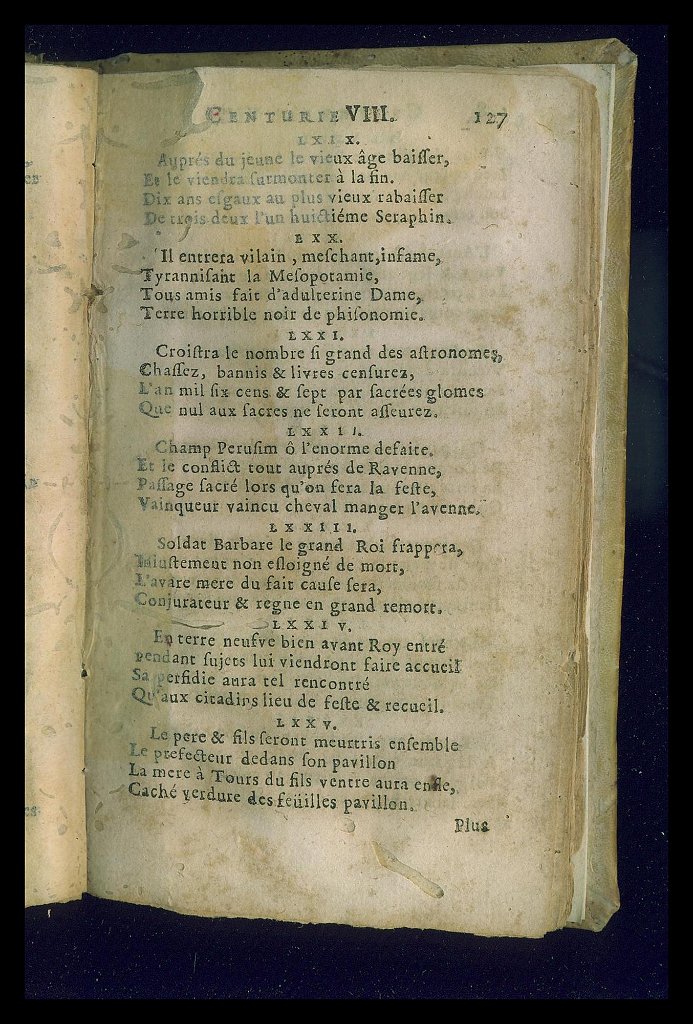 CENTURIE VIII. 127
LXIX.
Auprés du jeune le vieux âge baiſſer,
Et le viendra ſurmonter à la fin.
Dix ans eſgaux au plus vieux rabaiſſer
De trois deux l'un huictiéme Seraphin.
LXX.
Il entrera vilain, meſchant, infame,
Tyranniſant la Meſopotamie,
Tous amis fait d'adulterine Dame,
Terre horrible noir de phiſonomie.
LXXI.
Croiſtra le nombre ſi grand des aſtronomes,
Chaſſez, bannis & livres cenſurez,
L'an mil ſix cens & ſept par ſacrées glomes
Que nul aux ſacres ne ſeront aſſeurez.
LXXII.
Champ Peruſim ô l'enorme defaite.
Et le conflict tout auprés de Ravenne,
Paſſage ſacré lors qu'on fera la feſte,
Vainqueur vaincu cheval manger l'avenne.
LXXIII.
Soldat Barbare le grand Roi frappera,
Injuſtement non eſloigné de mort,
L'avare mere du fait cauſe ſera,
Conjurateur & regne en grand remort.
LXXIV.
En terre neufve bien avant Roy entré
Pendant ſujets lui viendront faire accueil
Sa perfidie aura tel rencontré
Qu'aux citadins lieu de feſte & recueil.
LXXV.
Le pere & fils ſeront meurtris enſemble
Le prefecteur dedans ſon pavillon
La mere à Tours du fils ventre aura enfle,
Caché verdure des feüilles pavillon.
Plus